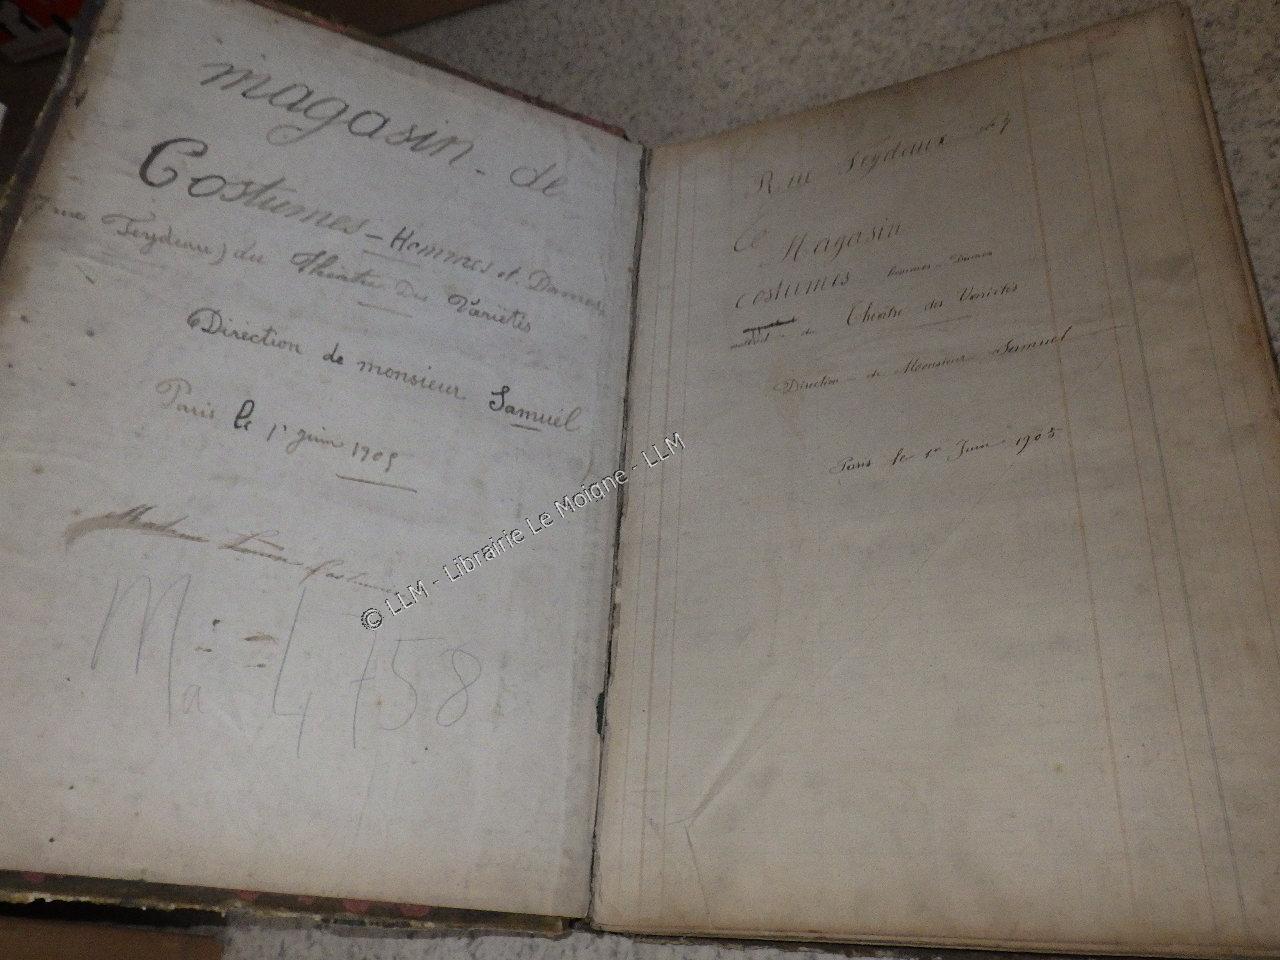 magasin - de
Costumes - Hommes et Dames
rue Feydeau) du théâtre Des Variétés
Direction de monsieur Samuel
Paris le 1er juin 1905
Madame
Ma 4758
Rue Feydeau
Magasin
Costumes hommes - Dames
du Théâtre des Variétés
Direction - de Monsieur Samuel
Paris le 1er Juin 1905
© LLM - Librairie Le Moigne - LLM